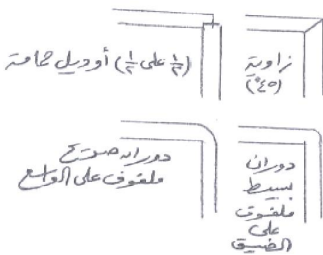 زاوية
(٤٥°)
(½ على ½) أو ديل حمامة
دوران
بسيط
ملفوف
على
الضيق
دوران
ملفوف على الواسع